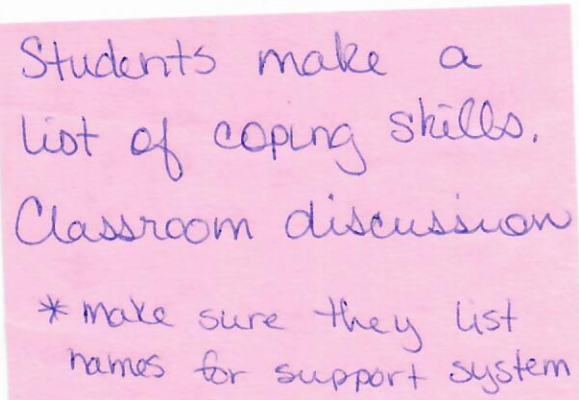 Students make a
list of coping skills.
Classroom discussion
* make sure they list
names for support system